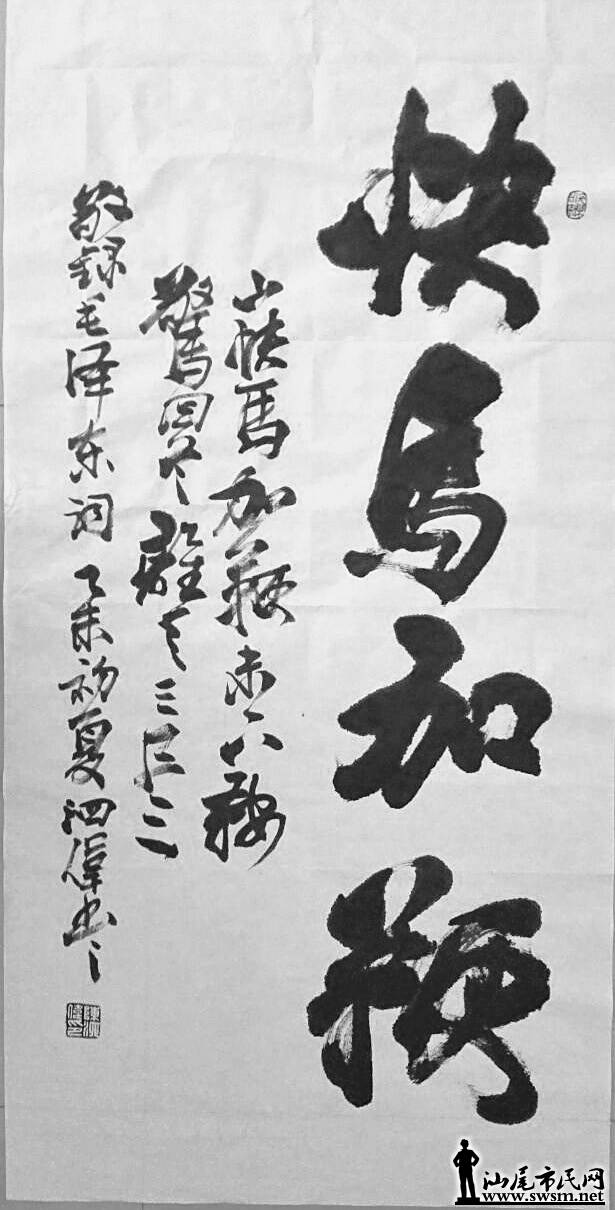 快马加鞭
山快馬加鞭未下鞍
驚回首離天三尺三
敬録毛泽东词乙未初夏泗偉书
汕尾市民网
www.swsm.net